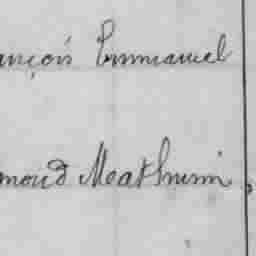 ançois Emmanuel
mond Mathurin,